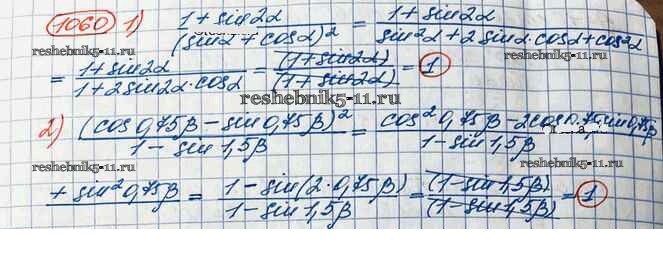 1060 1) (1+sin2α)/(sinα+cosα)² = (1+sin2α)/(sin²α+2sinα·cosα+cos²α)
www.reshebnik5-11.ru
= (1+sin2α)/(1+2sin2α·cosα) = (1+sin2α)/(1+sin2α) = 1
reshebnik5-11.ru
2) (cos0,75β−sin0,75β)²/(1−sin1,5β) = (cos²0,75β−2cos0,75β·sin0,75β)/(1−sin1,5β)
reshebnik5-11.ru
+sin²0,75β = (1−sin(2·0,75β))/(1−sin1,5β) = (1−sin1,5β)/(1−sin1,5β) = 1
www.reshebnik5-11.ru